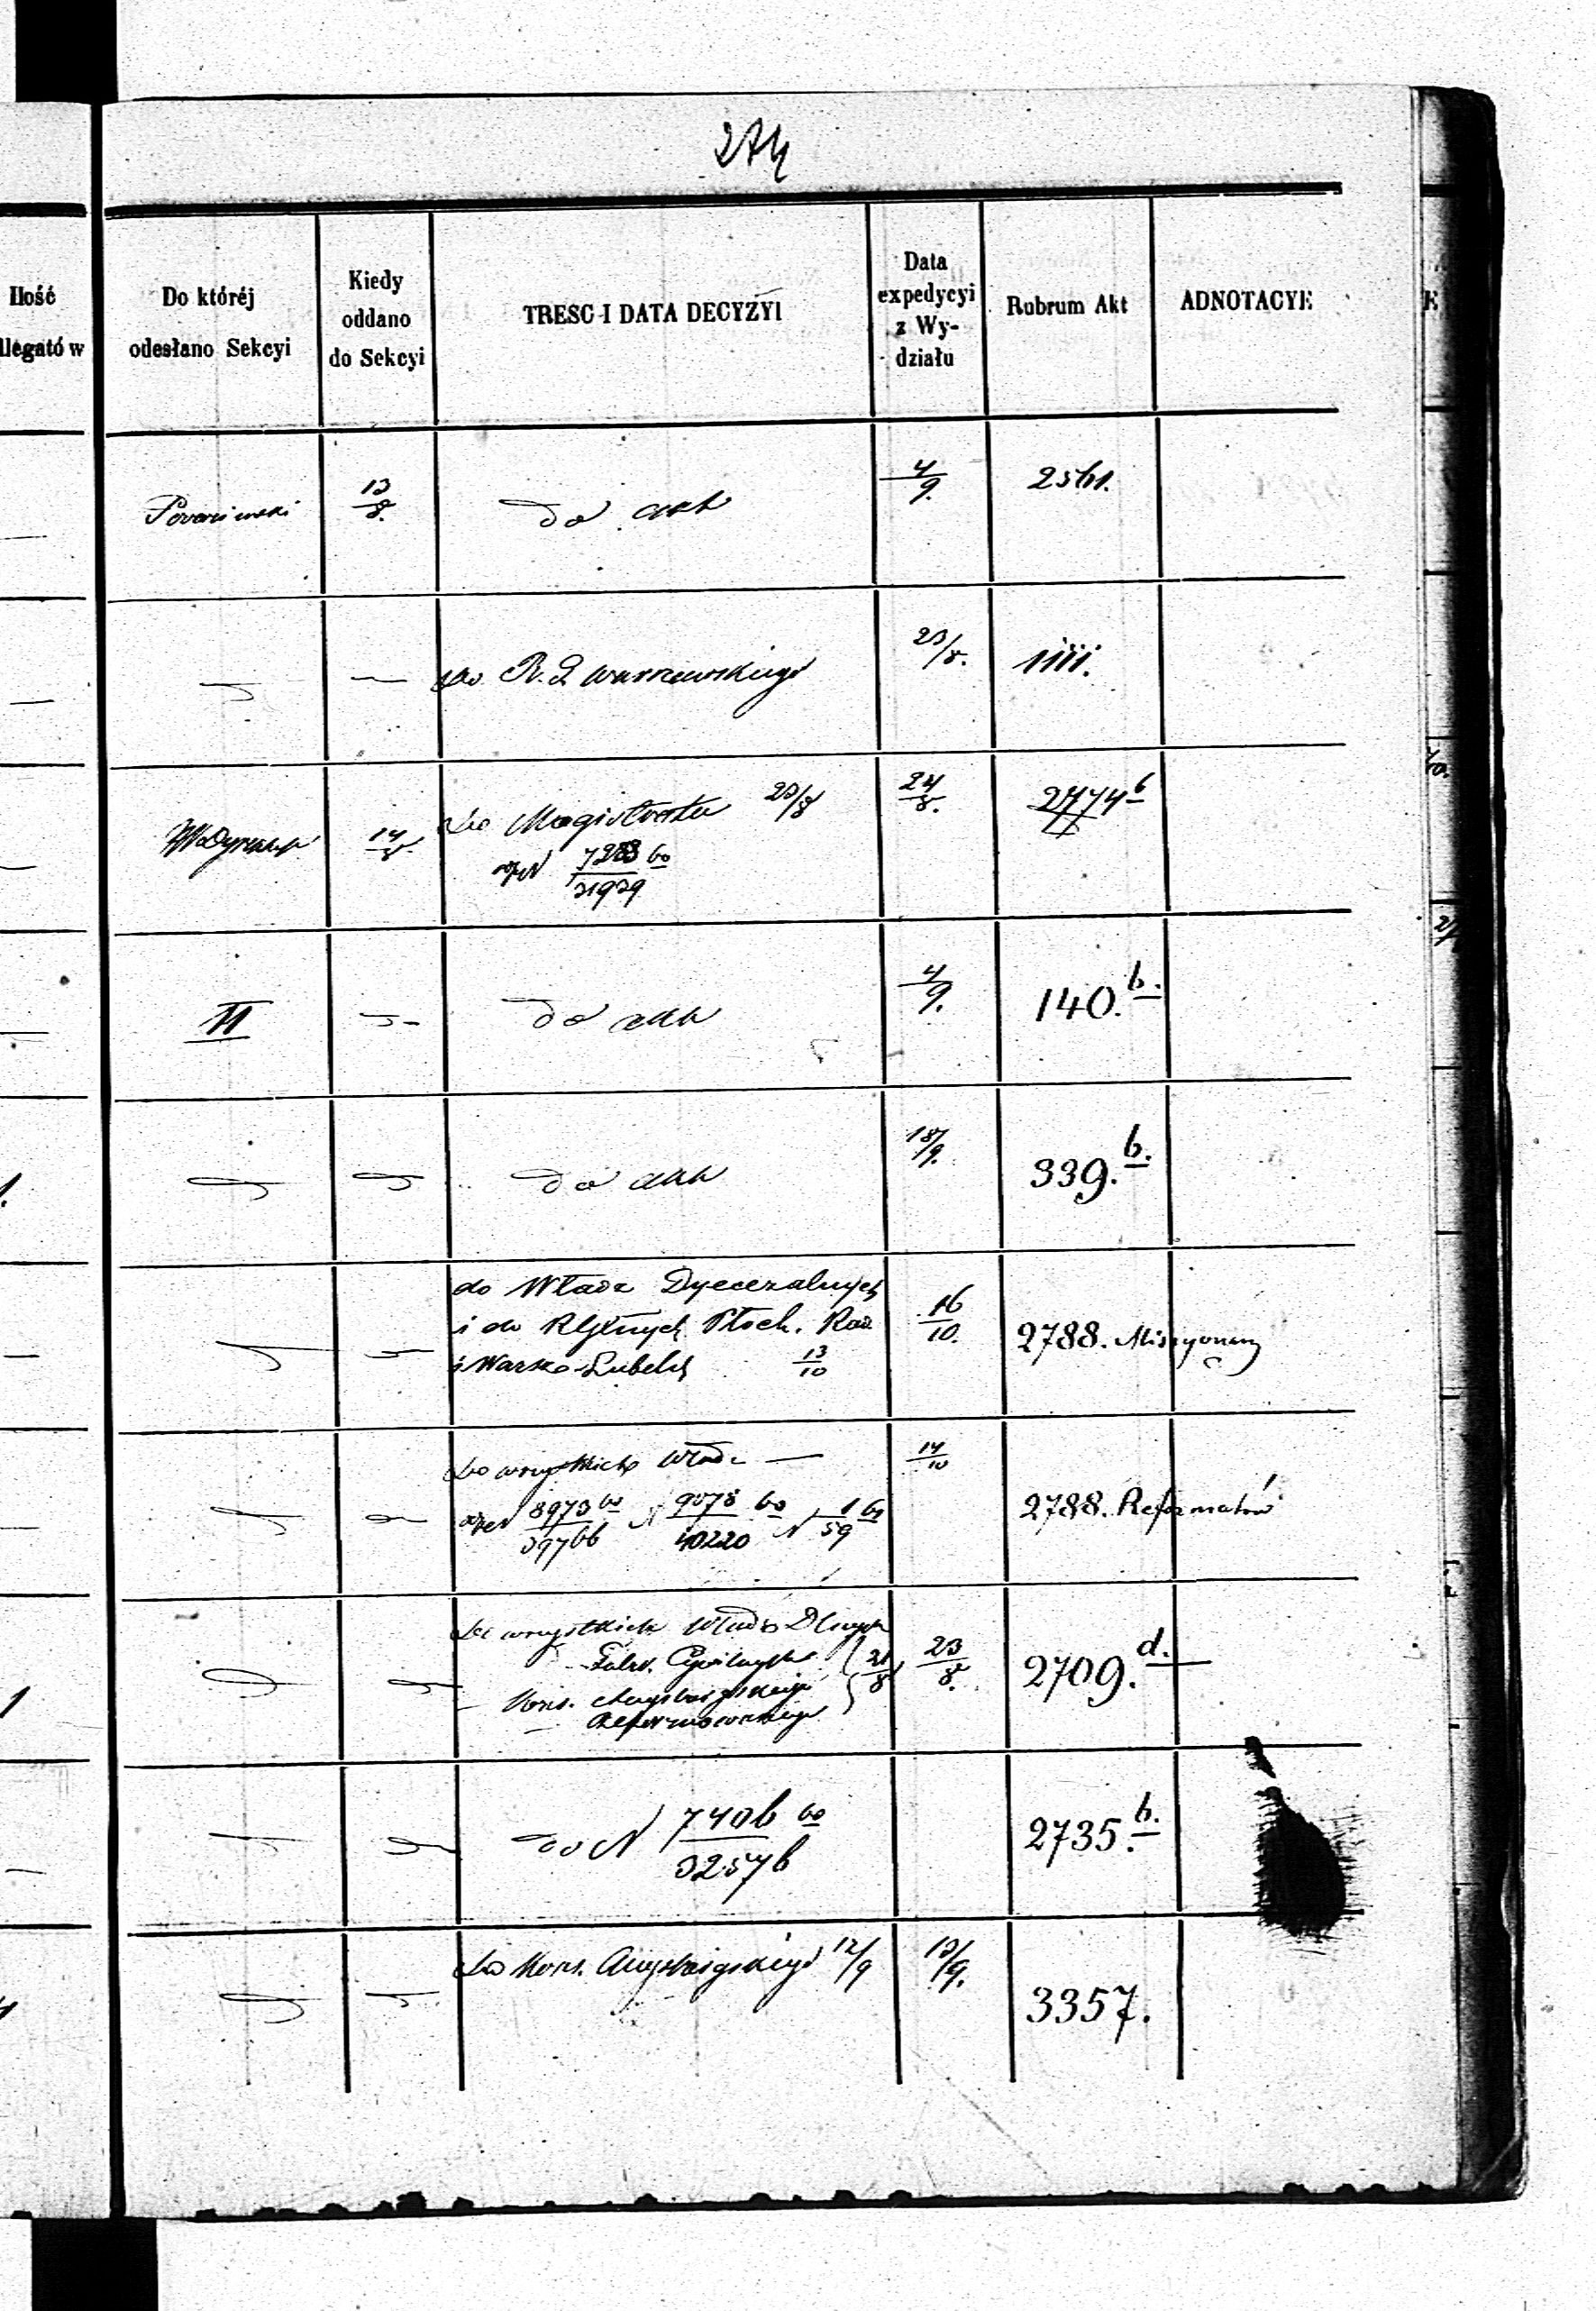 274
Ilość
llegatów
Do któréj
odesłano Sekcyi
Kiedy
oddano
do Sekcyi
TREŚC I DATA DECYZYI
Data
expedycyi
z Wy-
działu
Rubrum Akt
ADNOTACYE
13/8.
do akt
4/9.
2561.
do R. G. Warszawskiego
23/8.
1111.
14/8.
do Magistratu 23/8
24/8.
2774 b
II
do akt
4/9.
140. b.
do akt
18/9.
339. b.
do Władz Dyecezalnych
i do Płock. Rad
i Warsz. Lubels
13/10
16/10.
2788. Missyonarzy
do wszystkich Władz —
8973/39766 N 9078/40220 N 1/59
14/10
2788. Reformatów
do wszystkich Władz
Kons. Augsburgskiego 21/8
Reformowanego
23/8.
2709. d.
do N 7406/32576
2735. b.
do Kons. Augsburgskiego 12/9
13/9.
3357.